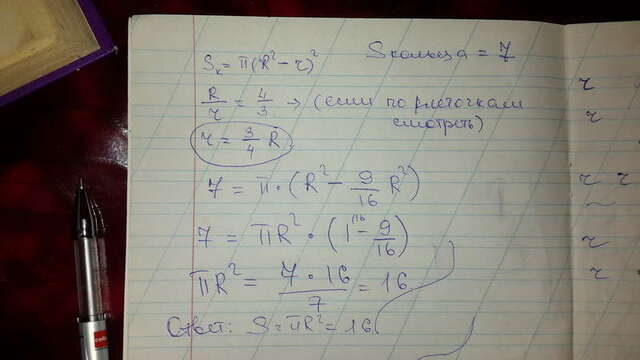 Sкольца = 7
Sк = π(R² - r)²
R/r = 4/3 → (если по клеточкам
смотреть)
r = 3/4 R
7 = π · (R² - 9/16 R²)
7 = πR² · (1¹⁶ - 9/16)
πR² = 7 · 16/7 = 16
Ответ: S = πR² = 16